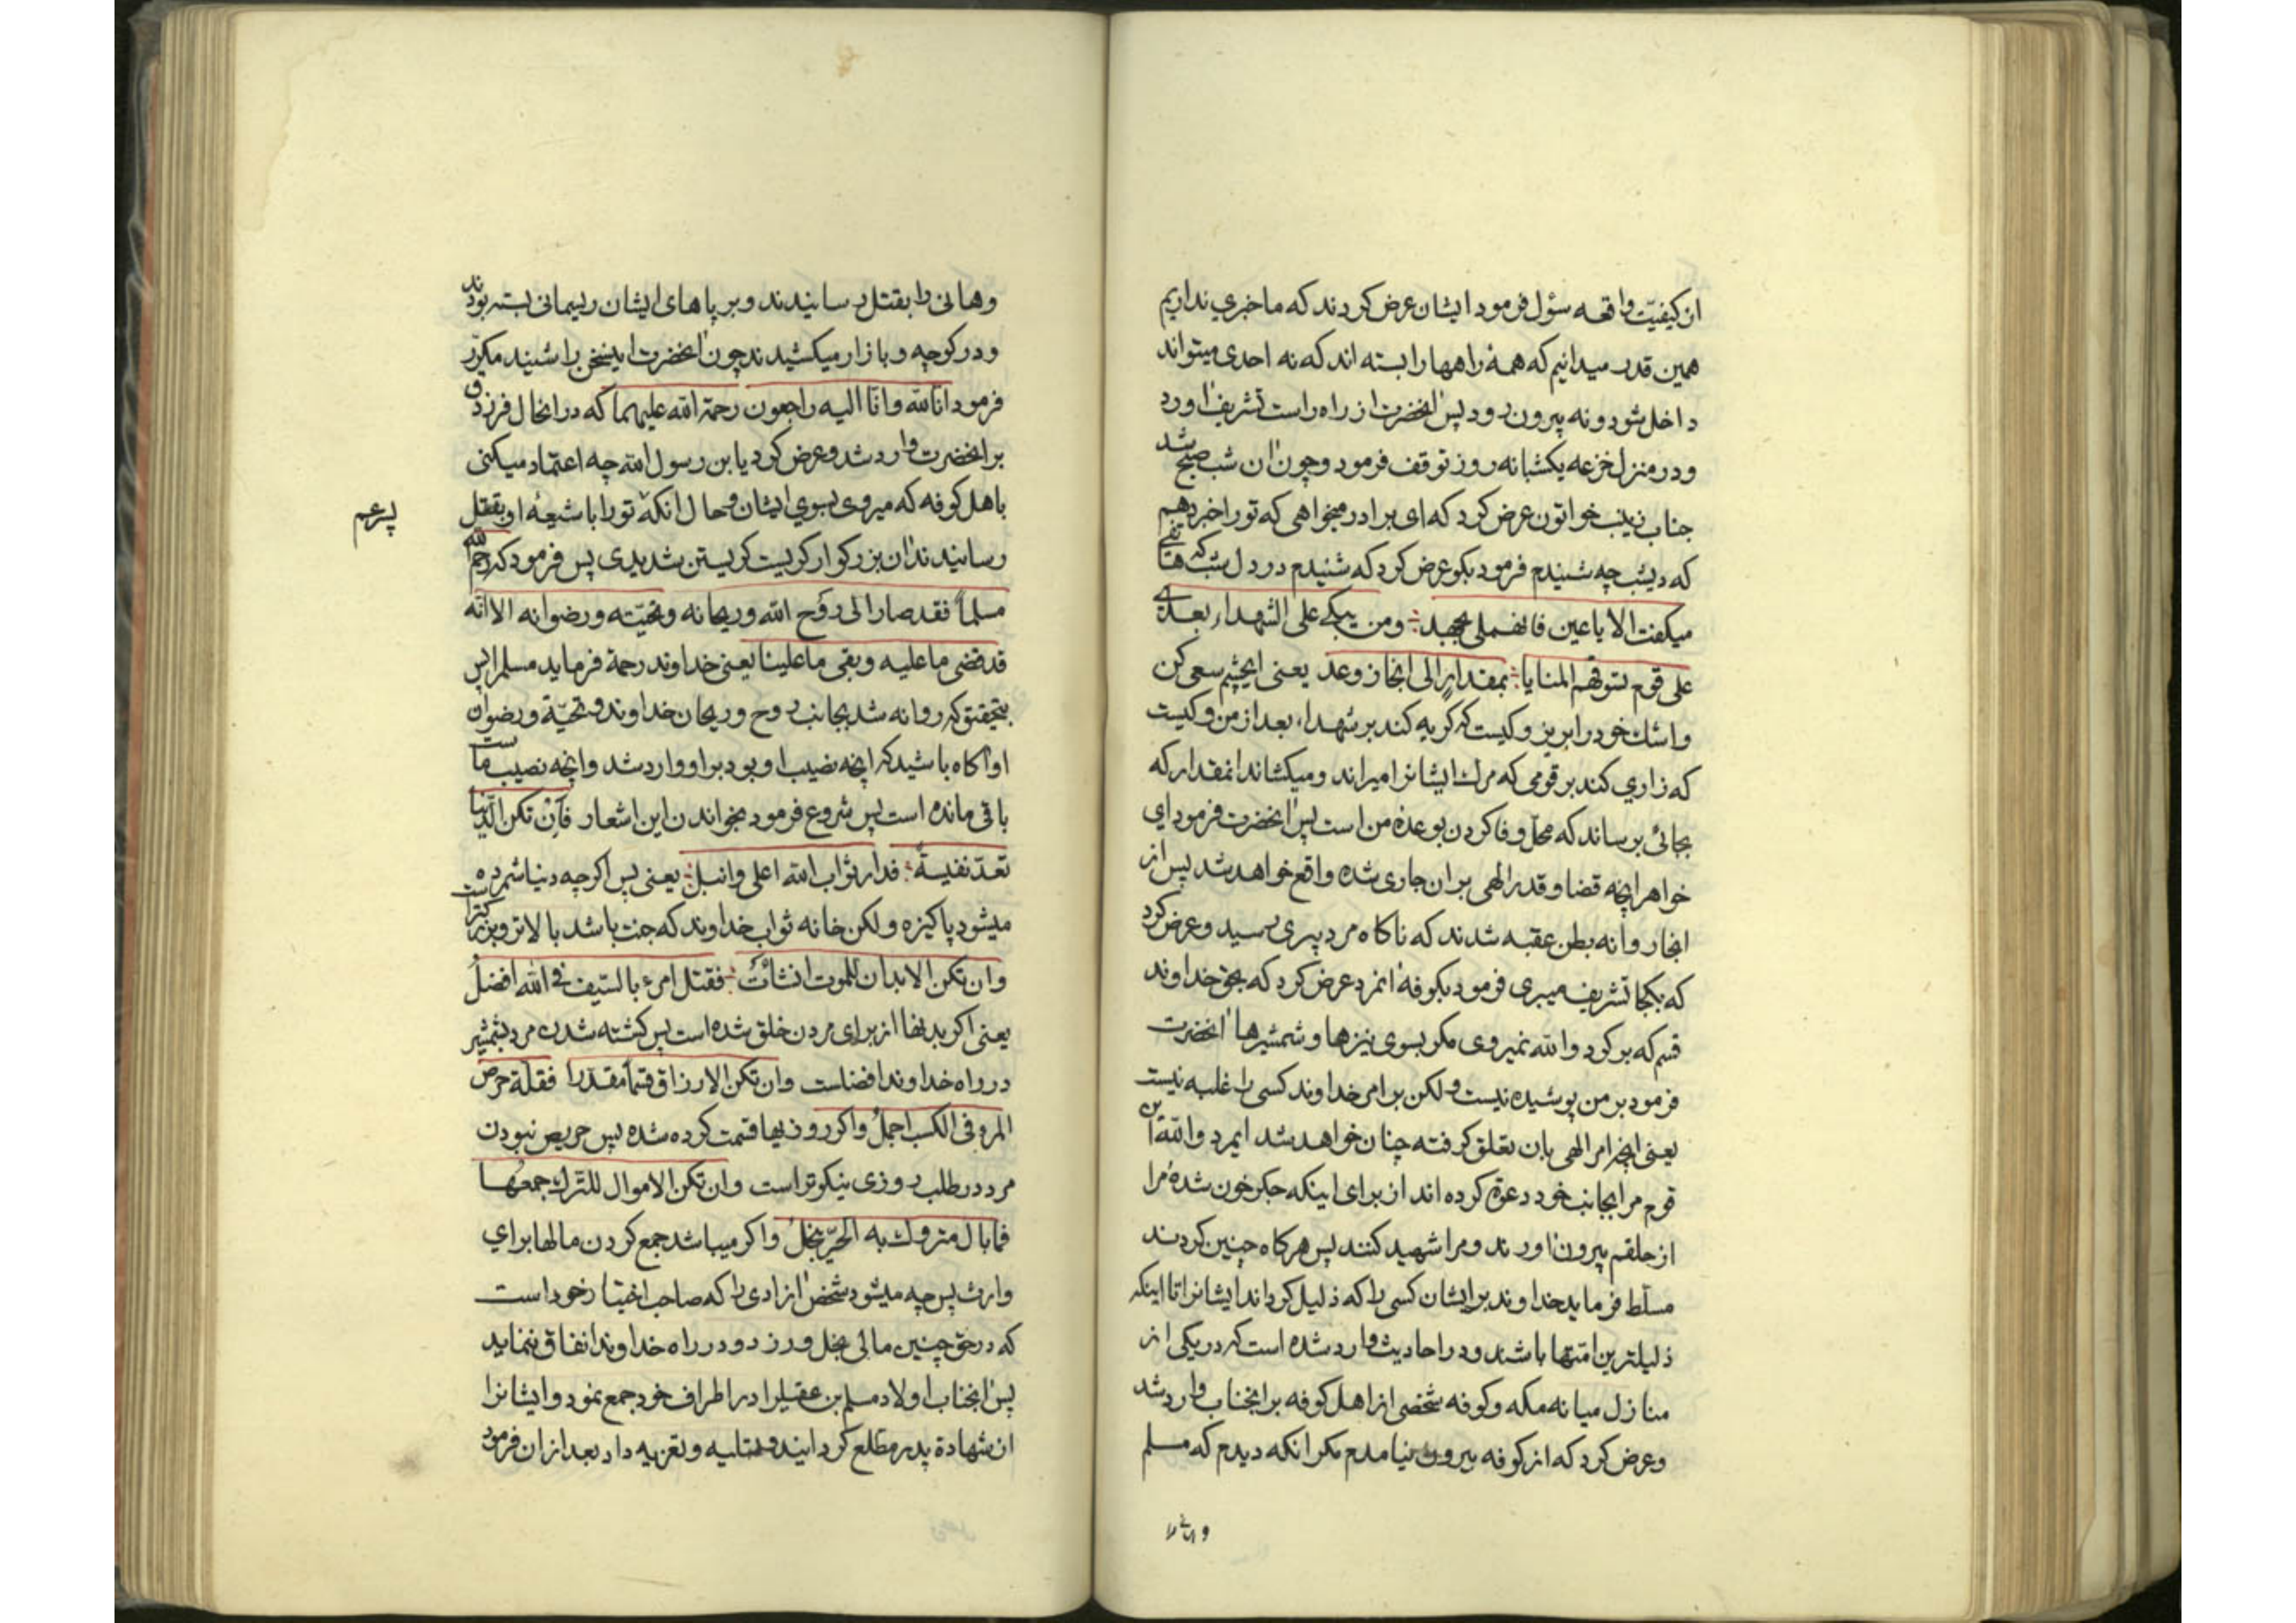 از کیفیّت واقعه سؤل فرمود ایشان عرض کردند که ما خبری نداریم
همین قدر میدانیم که همهٔ راهها را بسته اند که نه احدی میتواند
داخل شود و نه بیرون رود پس آنحضرت از راه راست تشریف آورد
و در منزل خزیمه یکشبانه روز توقف فرمود و چون آن شب صبح شد
جناب زینب خواتون عرض کرد که ای برادر میخواهی که تو را خبر دهم
که دیشب چه شنیدم فرمود بکو عرض کرد که شنیدم در دل شب که هاتفی
میکفت الا یا عین فانهملی بجهد ؞ ومن یبکی علی الشهداء بعدی
علی قوم تسوقهم المنایا ؞ بمقدار الی انجاز وعد یعنی ایچشم سعی کن
و اشک خود را بریز و کیست که کریه کند بر شهداء بعد از من و کیست
که زاری کند بر قومی که مرک ایشانرا میراند و میکشاند آنمقدار که
بجائی برساند که محلّ وفا کردن بوعدهٔ من است پس آنحضرت فرمود ای
خواهر آنچه قضا و قدر الهی بر آن جاری شده واقع خواهد شد پس از
آنجا روانه بطن عقبه شدند که ناکاه مرد پیری رسید و عرض کرد
که بکجا تشریف میبری فرمود بکوفه آنمرد عرض کرد که بحق خداوند
قسم که برکرد والله نمیروی مکر بسوی نیزها و شمشیرها آنحضرت
فرمود بر من پوشیده نیست و لکن بر امر خداوند کسی را غلبه نیست
یعنی آنچه امر الهی بان تعلق کرفته چنان خواهد شد ایمرد والله این
قوم مرا بجانب خود دعوة کرده اند از برای اینکه جکر خون شدهٔ مرا
از حلقم بیرون آورند و مرا شهید کنند پس هرکاه چنین کردند
مسلّط فرماید خداوند بر ایشان کسی را که ذلیل کرداند ایشانرا تا اینکه
ذلیلترین امتها باشند و در احادیث وارد شده است که در یکی از
منازل میانه مکه و کوفه شخصی از اهل کوفه بر آنجناب وارد شد
و عرض کرد که از کوفه بیرون نیامدم مکر آنکه دیدم که مسلم
وهانی را
وهانی را بقتل رسانیدند و بر پاهای ایشان ریسمانی بسته بودند
و در کوچه و بازار میکشیدند چون آنحضرت اینسخن را شنید مکرّر
فرمود انا لله وانّا الیه راجعون رحمة الله علیهما که در آنحال فرزدق
بر آنحضرت وارد شد و عرض کرد یابن رسول الله چه اعتماد میکنی
باهل کوفه که میروی بسوی ایشان و حال آنکه تو را با شیعهٔ او بقتل
پسر عم
رسانیدند آن بزرکوار کریست کریستن شدیدی پس فرمود که رحم الله
مسلماً فقد صار الی رَوح الله وریحانه وتحیّته ورضوانه الا انّه
قد قضی ما علیه وبقی ما علینا یعنی خداوند رحمة فرماید مسلم را پس
بتحقیق که روانه شد بجانب روح و ریحان خداوند و تحیّة و رضوان
او آکاه باشید که آنچه نصیب او بود بر او وارد شد و آنچه نصیب ماست
باقی مانده است پس شروع فرمود بخواندن این اشعار فاِنْ تکن الدّنیا
تعدّ نفیسةً ؞ فدار ثواب الله اعلی وانبل ؞ یعنی پس اکرچه دنیا شمرده
میشود پاکیزه و لکن خانه ثواب خداوند که جنت باشد بالاتر و بزرکتر است
وان تکن الابدان للموت انشأتْ ؞ فقتل امرء بالسّیف فی الله افضلُ
یعنی اکر بدنها از برای مردن خلق شده است پس کشته شدن مرد بشمشیر
در راه خداوند افضلست وان تکن الارزاق قسماً مقدّرا فقلّة حرص
المرء فی الکسب اجملُ و اکر روزیها قسمت کرده شده پس حریص نبودن
مرد در طلب روزی نیکوتر است وان تکن الاموال للترک جمعها
فما بال متروک به الحرّ یبخلُ و اکر میباشد جمع کردن مالها برای
وارث پس چه میشود شخص آزادی را که صاحب اختیار خود است
که در حق چنین مالی بخل ورزد و در راه خداوند انفاق ننماید
پس آنجناب اولاد مسلم بن عقیلرا در اطراف خود جمع نمود و ایشانرا
از شهادة پدر مطلع کردانید و تسلیه و تعزیه داد بعد از آن فرمود